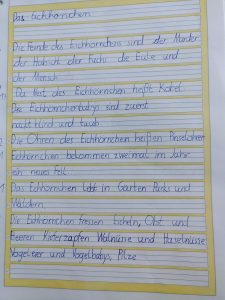 Das Eichhörnchen
Die Feinde des Eichhörnchens sind der Marder
der Habicht der Fuchs die Eule und
der Mensch
Da Nest des Eichhörnchen heißt Kobel.
Die Eichhörnchenbabys sind zuerst
nackt blind und taub.
Die Ohren des Eichhörnchen heißen Pinselohren
Eichhörnchen bekommen zweimal im Jahr
ein neues Fell.
Das Eichhörnchen lebt in Garten Parks und
Wäldern.
Die Eichhörnchen fressen Eicheln, Obst und
Beeren Kieferzapfen Walnüsse und Haselnüsse
Vogeleier und Vogelbabys, Pilze